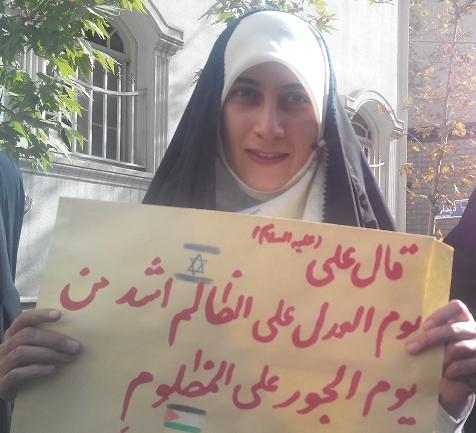 قال علی (علیه السلام)
یوم العدل علی الظالم اشد من
یوم الجور علی المظلوم